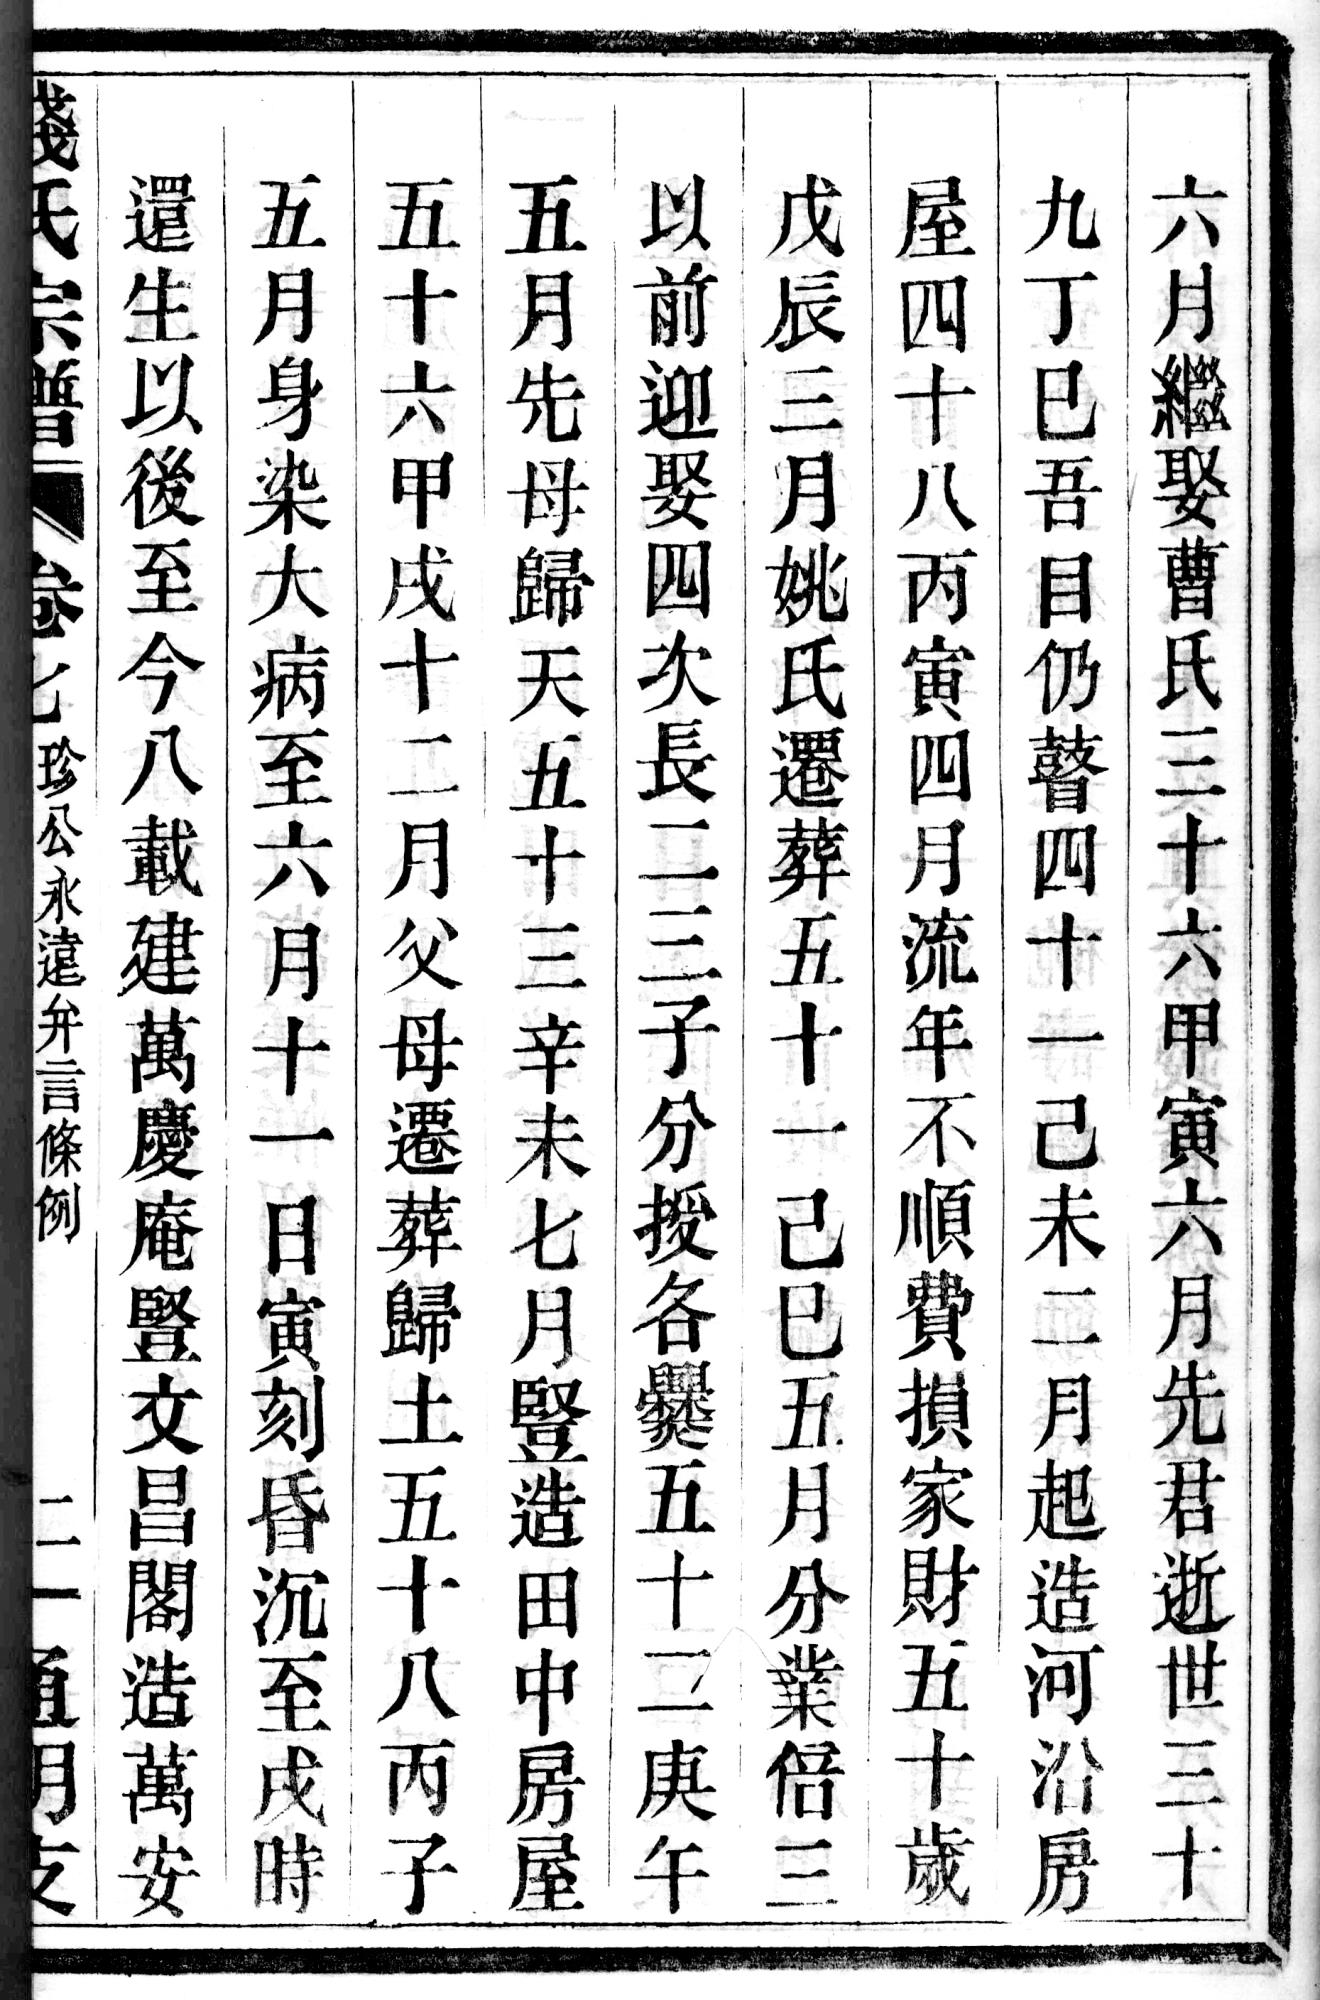 六月繼娶曹氏三十六甲寅六月先君逝世三十
九丁巳吾目仍瞽四十一己未二月起造河沿房
屋四十八丙寅四月流年不順費損家財五十歲
戊辰三月姚氏遷葬五十一己巳五月分業倍三
以前迎娶四次長二三子分授各爨五十二庚午
五月先母歸天五十三辛未七月豎造田中房屋
五十六甲戌十二月父母遷葬歸土五十八丙子
五月身染大病至六月十一日寅刻昏沉至戌時
還生以後至今八載建萬慶庵豎文昌閣造萬安
錢氏宗譜 卷七 珍公永遠弁言條例 二一 通明支